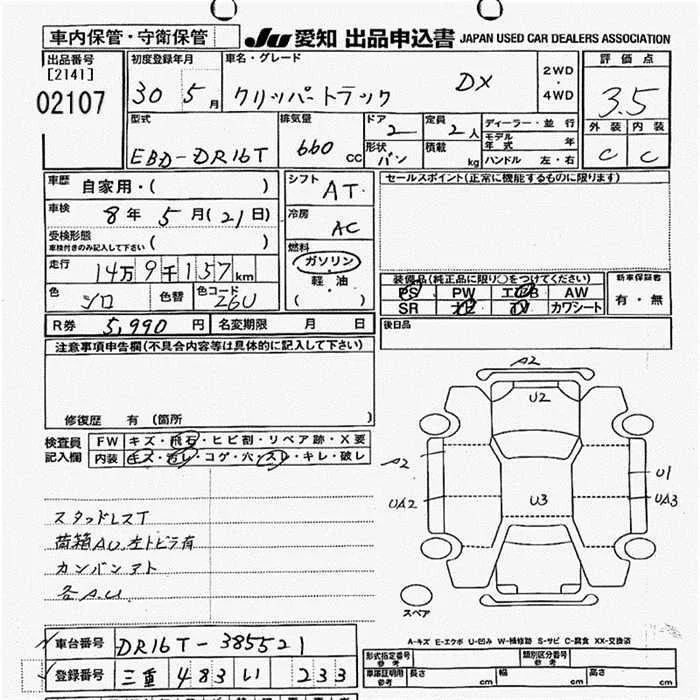 車内保管・守衛保管 JU 愛知 出品申込書 JAPAN USED CAR DEALERS ASSOCIATION
出品番号 [2141] 02107
初度登録年月 30 5月
車名・グレード クリッパートラック DX
2WD・4WD
評価点 3.5
外装 内装
C C
型式 EBD-DR16T
排気量 660 cc
ドア 2
形状 バン
定員 2人
積載 kg
ディーラー・並行
モデル年式 年
ハンドル 左・右
車歴 自家用・( )
車検 8年 5月(21日)
受検形態 車検付きのみ記入して下さい ( )
走行 14万9千157km
色 シロ 色替 色コード 26U
シフト AT
冷房 AC
燃料 ガソリン・軽油 ( )
セールスポイント(正常に機能するものに限ります)
装備品(純正品に限り○をつけてください)
PS PW エアB AW
SR ナビ TV カワシート
新車保証書 有・無
R券 5,990円 名変期限 月 日
後日品
注意事項申告欄(不具合内容等は具体的に記入して下さい)
修復歴 有 (箇所 )
検査員記入欄
FW キズ・飛石・ヒビ割・リペア跡・X要
内装 キズ・汚レ・コゲ・穴・スレ・キレ・破レ
スタッドレスT
荷箱AU 左トビラ有
カンバンアト
各A.U
A2
U2
A2
U1
UA2
U3
UA3
スペア
A-キズ E-エクボ U-凹み W-補修跡 S-サビ C-腐食 XX-交換済
車台番号 DR16T-385521
登録番号 三重 483 い 233
形式指定番号 参考 類別区分番号 参考
車庫証明用 参考 長さ cm 幅 cm 高さ cm